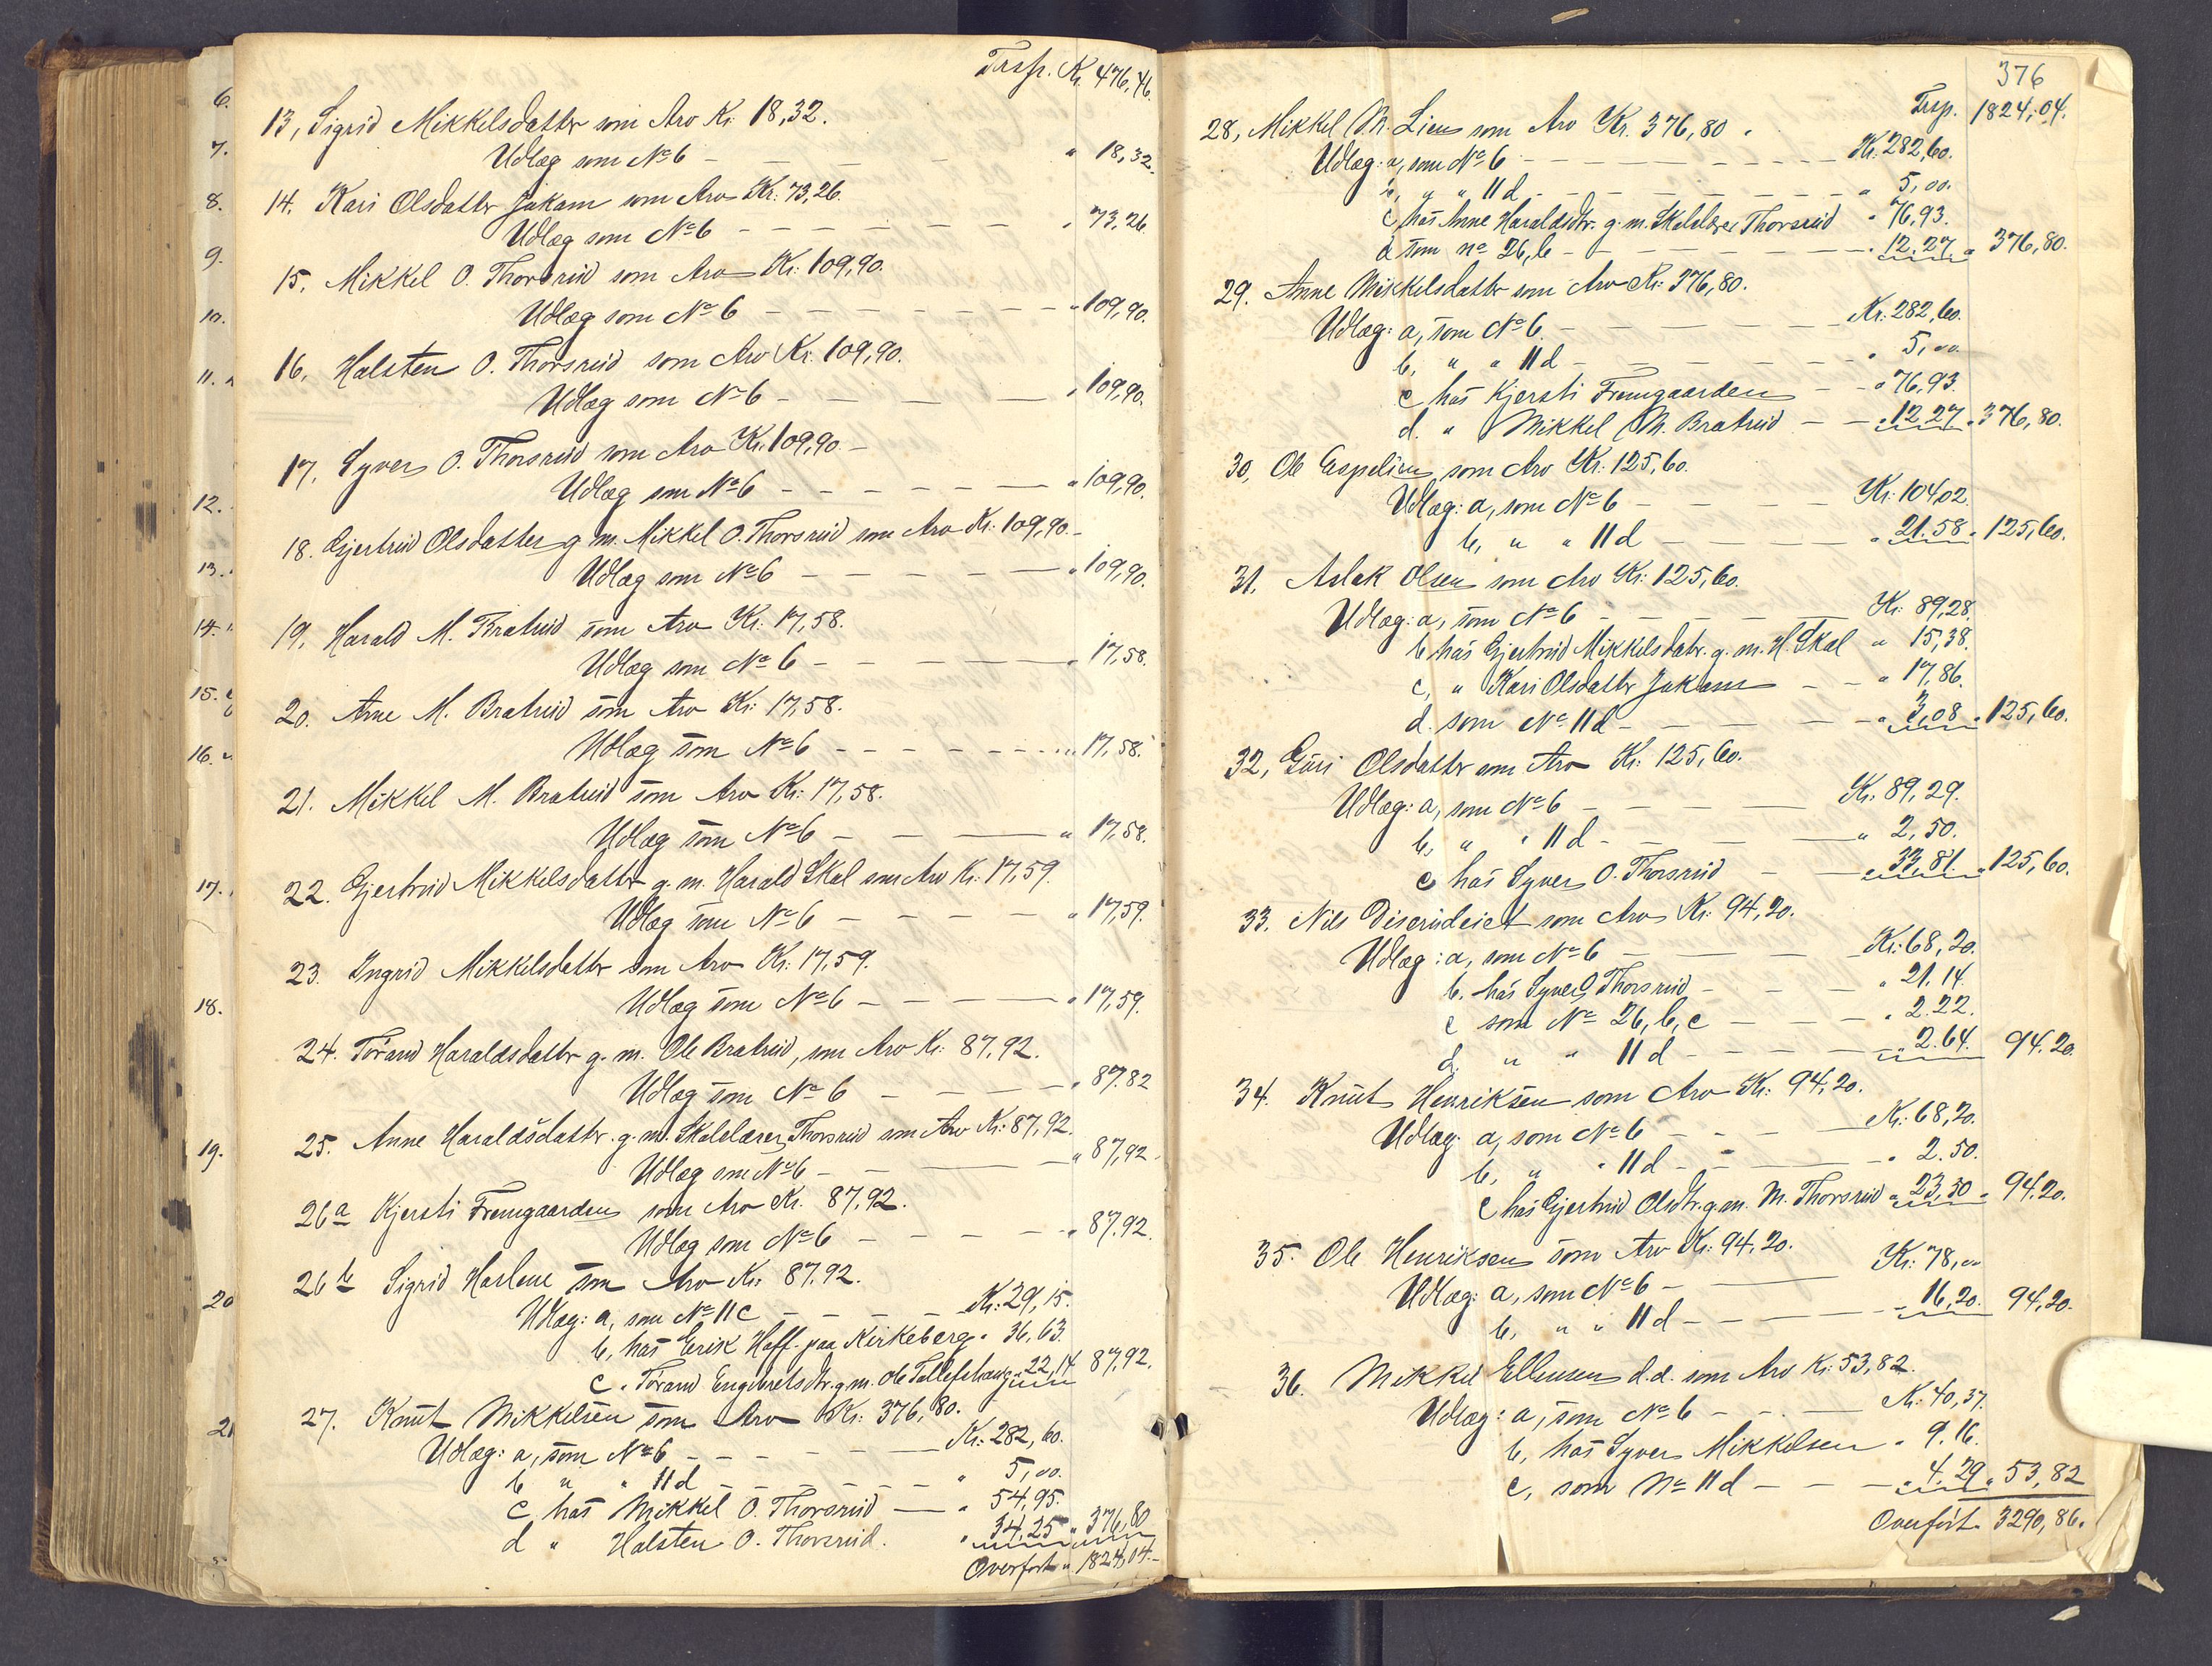 6.
7.
8.
9.
10.
11.
12.
13.
14.
15.
16.
17.
18.
19.
20
21
Trsp. Kr. 476,46.
13, Sigrid Mikkelsdatter som Arv Kr. 18,32.
Udlæg som No 6 - — — — " 18,32.
14. Kari Olsdatter Jokam som Arv Kr: 73,26.
Udlæg som No 6 - - - - - - „ 73,26.
15. Mikkel O. Thorsrud som Arv Kr: 109,90.
Udlæg som No 6 - - - - - - - " 109,90.
16. Halsten O. Thorsrud som Arv Kr. 109,90.
Udlæg som No 6 - — — — „ 109,90.
17. Syver O. Thorsrud som Arv Kr. 109,90.-
Udlæg som No 6 - - - - - — " 109,90.
18. Gjertrud Olsdatter g. m. Mikkel O. Thorsrud som Arv Kr. 109,90.-
Udlæg som No 6 - - - - - " 109,90.
19. Harald M. Bratrud som Arv Kr. 17,58.
Udlæg som No 6 - - - — " 17,58.
20. Arne M. Bratrud som Arv Kr: 17,58.
Udlæg som No 6 - - - - - - - " 17,58.
21. Mikkel M. Bratrud som Arv Kr: 17,58.
Udlæg som No 6 - — — " 17,58.
22. Gjertrud Mikkelsdatter g. m. Harald Skal som Arv Kr. 17,59.
Udlæg som No 6 - - - - - „ 17,59.
23. Ingrid Mikkelsdatter som Arv Kr: 17,59.
Udlæg som No 6 - - - — „ 17,59.
24. Torand Haraldsdatter g. m. Ole Bratrud, som Arv Kr. 87,92.
Udlæg som No 6 - - — „ 87.82
25. Anne Haraldsdatter. g. m. Skolelærer Thorsrud som Arv Kr: 87,92.
Udlæg som No 6 - - — — " 87,92.
26a Kjersti Fremgaarden som Arv Kr. 87,92.
Udlæg som No 6 - - - - „ 87.92.
26b Sigrid Harlene som Arv Kr: 87.92.
Udlæg: a, som No 11 c - - - - Kr: 29,15.
b, hos Erik Hoff. paa Kirkeberg " 36.63.
c. " Torand Engebretsdtr. g. m. Ole Tollefshaug " 22,14 87,92.
27. Knut Mikkelsen som Arv Kr: 376,80.
Udlæg: a, som No 6 - - - - Kr: 282,60.
b " " 11 d - - - - - " 5,00.
c, hos Mikkel O. Thorsrud — " 54,95.
d " Halsten O. Thorsrud. " 34,25 " 376,80
Overført " 1824,04.-
376
Trsp. 1824,04.
28, Mikkel M. Lien som Arv Kr. 376,80.
Udlæg: a, som No 6 - - - - - - Kr. 282,60.
b, " " 11 d - - - - - - " 5,00.
c, hos Anne Haraldsdtr. g. m. Skolelærer Thorsrud " 76,93.
d som No 26, b - - - - - " 12,27 " 376,80.
29. Anne Mikkelsdatter som Arv Kr: 376,80.
Udlæg: a, som No 6. - - - - Kr: 282,60.
b, " " 11 d - - - - - " 5,00.
c hos Kjersti Fremgaarden - - " 76,93.
d. " Mikkel M. Bratrud - - " 12,27 " 376,80.
30, Ole Espelien som Arv Kr: 125,60.
Udlæg: a, som No 6 - - - - Kr: 104,02.
b, " " 11 d - - - - - " 21.58 " 125,60.
31. Aslak Olsen som Arv Kr: 125,60.
Udlæg: a, som No 6 - - - - Kr: 89,28.
b hos Gjertrud Mikkelsdatr. g. m. H. Skal " 15,38.
c, " Kari Olsdatter Jokam - - " 17,86.
d. som No 11 d - - - - - " 3,08 " 125,60.
32, Guri Olsdatter som Arv Kr: 125,60.
Udlæg: a, som No 6 - - - — Kr: 89,29.
b, " " 11 d - - - — " 2,50.
c hos Syver O. Thorsrud - — " 33,81. " 125,60.
33. Nils Diserudeiet som Arv Kr: 94,20.
Udlæg: a, som No 6 - - - - Kr: 68,20.
b. hos Syver Thorsrud - - - " 21,14.
c som No 26, b, c - - - " 2.22.
d. " " 11 d - - - - " 2.64. 94.20.
34. Knut Henriksen som Arv Kr: 94,20.
Udlæg: a, som No 6 - - - - Kr: 68,20.
b, " " 11 d - - - - " 2.50.
c hos Gjertrud Olsdtr. g. m. M. Thorsrud " 23,50 " 94,20.
35. Ole Henriksen som Arv Kr: 94,20.
Udlæg: a, som No 6 - — Kr: 78,00
b, " " 11 d - - - — " 16,20. 94,20.
36. Mikkel Ellensen d.d. som Arv Kr: 53,82.
Udlæg: a, som No 6 - - - — Kr: 40,37.
b, hos Syver Mikkelsen " 9.16.
c, som No 11 d - - - " 4.29 " 53,82
Overført " 3290,86.